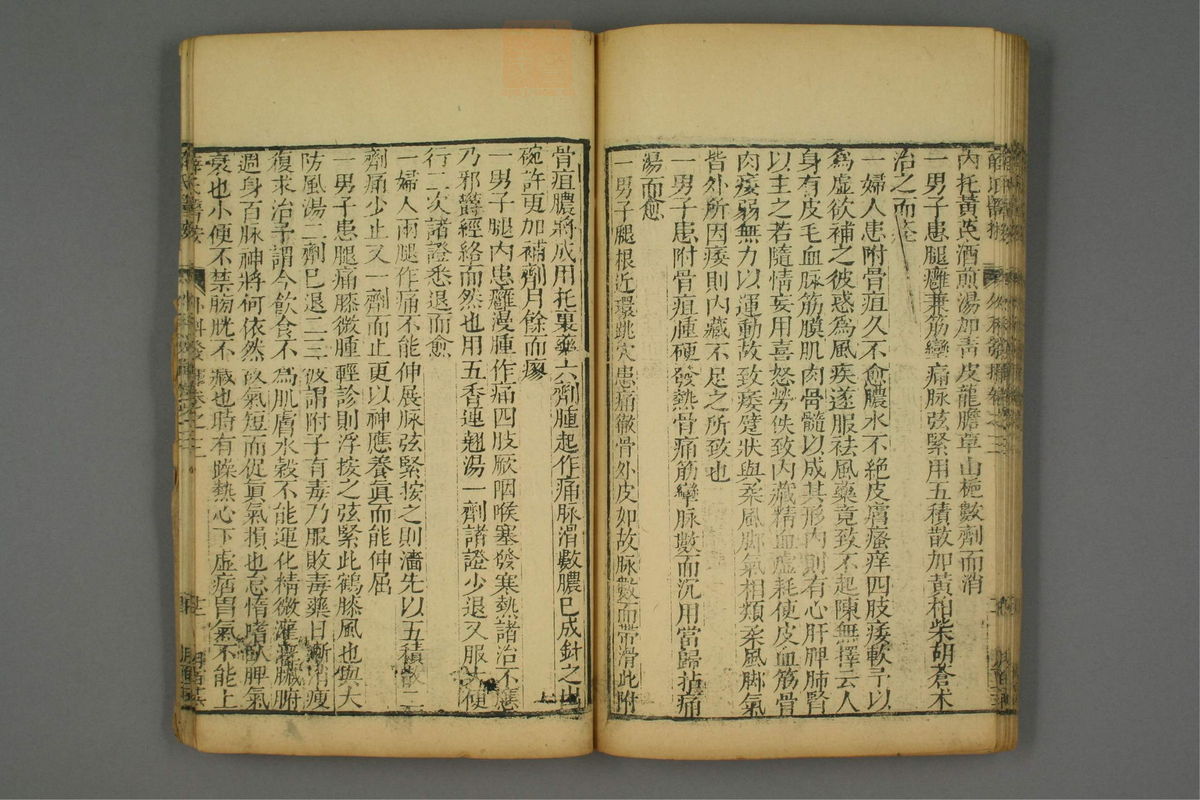 內托黃芪酒煎湯加青皮龍膽草山梔數劑而消
一男子患腿癰兼筋攣痛脉弦緊用五積散加黃柏柴胡蒼术
治之而痊
一婦人患附骨疽久不愈膿水不絶皮膚瘙痒四肢痿軟予以
爲虛欲補之彼惑爲風疾遂服祛風藥竟致不起陳無擇云人
身有皮毛血脉筋膜肌肉骨髓以成其形內則有心肝脾肺腎
以主之若隨情妄用喜怒勞佚致內藏精血虛耗使皮血筋骨
肉痿弱無力以運動故致痿躄狀與柔風脚氣相類柔風脚氣
皆外所因痿則內藏不足之所致也
一男子患附骨疽腫硬發熱骨痛筋攣脉數而沉用當歸拈痛
湯而愈
一男子腿根近環跳穴患痛徹骨外皮如故脉數而帶滑此附
骨疽膿將成用托裏藥六劑腫起作痛脉滑數膿已成針之出
碗許更加補劑月餘而瘳
一男子腿內患癰漫腫作痛四肢厥咽喉塞發寒熱諸治不應
乃邪鬱經絡而然也用五香連翹湯一劑諸證少退又服大便
行二次諸證悉退而愈
一婦人兩腿作痛不能伸展脉弦緊按之則濇先以五積散二
劑痛少止又一劑而止更以神應養眞而能伸屈
一男子患腿痛膝微腫輕診則浮按之弦緊此鶴膝風也與大
防風湯二劑已退二三彼謂附子有毒乃服敗毒藥日漸消瘦
復求治予謂今飲食不爲肌膚水穀不能運化精微灌漑臟腑
週身百脉神將何依然故氣短而促眞氣損也怠惰嗜臥脾氣
衰也小便不禁膀胱不藏也時有躁熱心下虛痞胃氣不能上
薛氏醫按
外科發揮卷之三